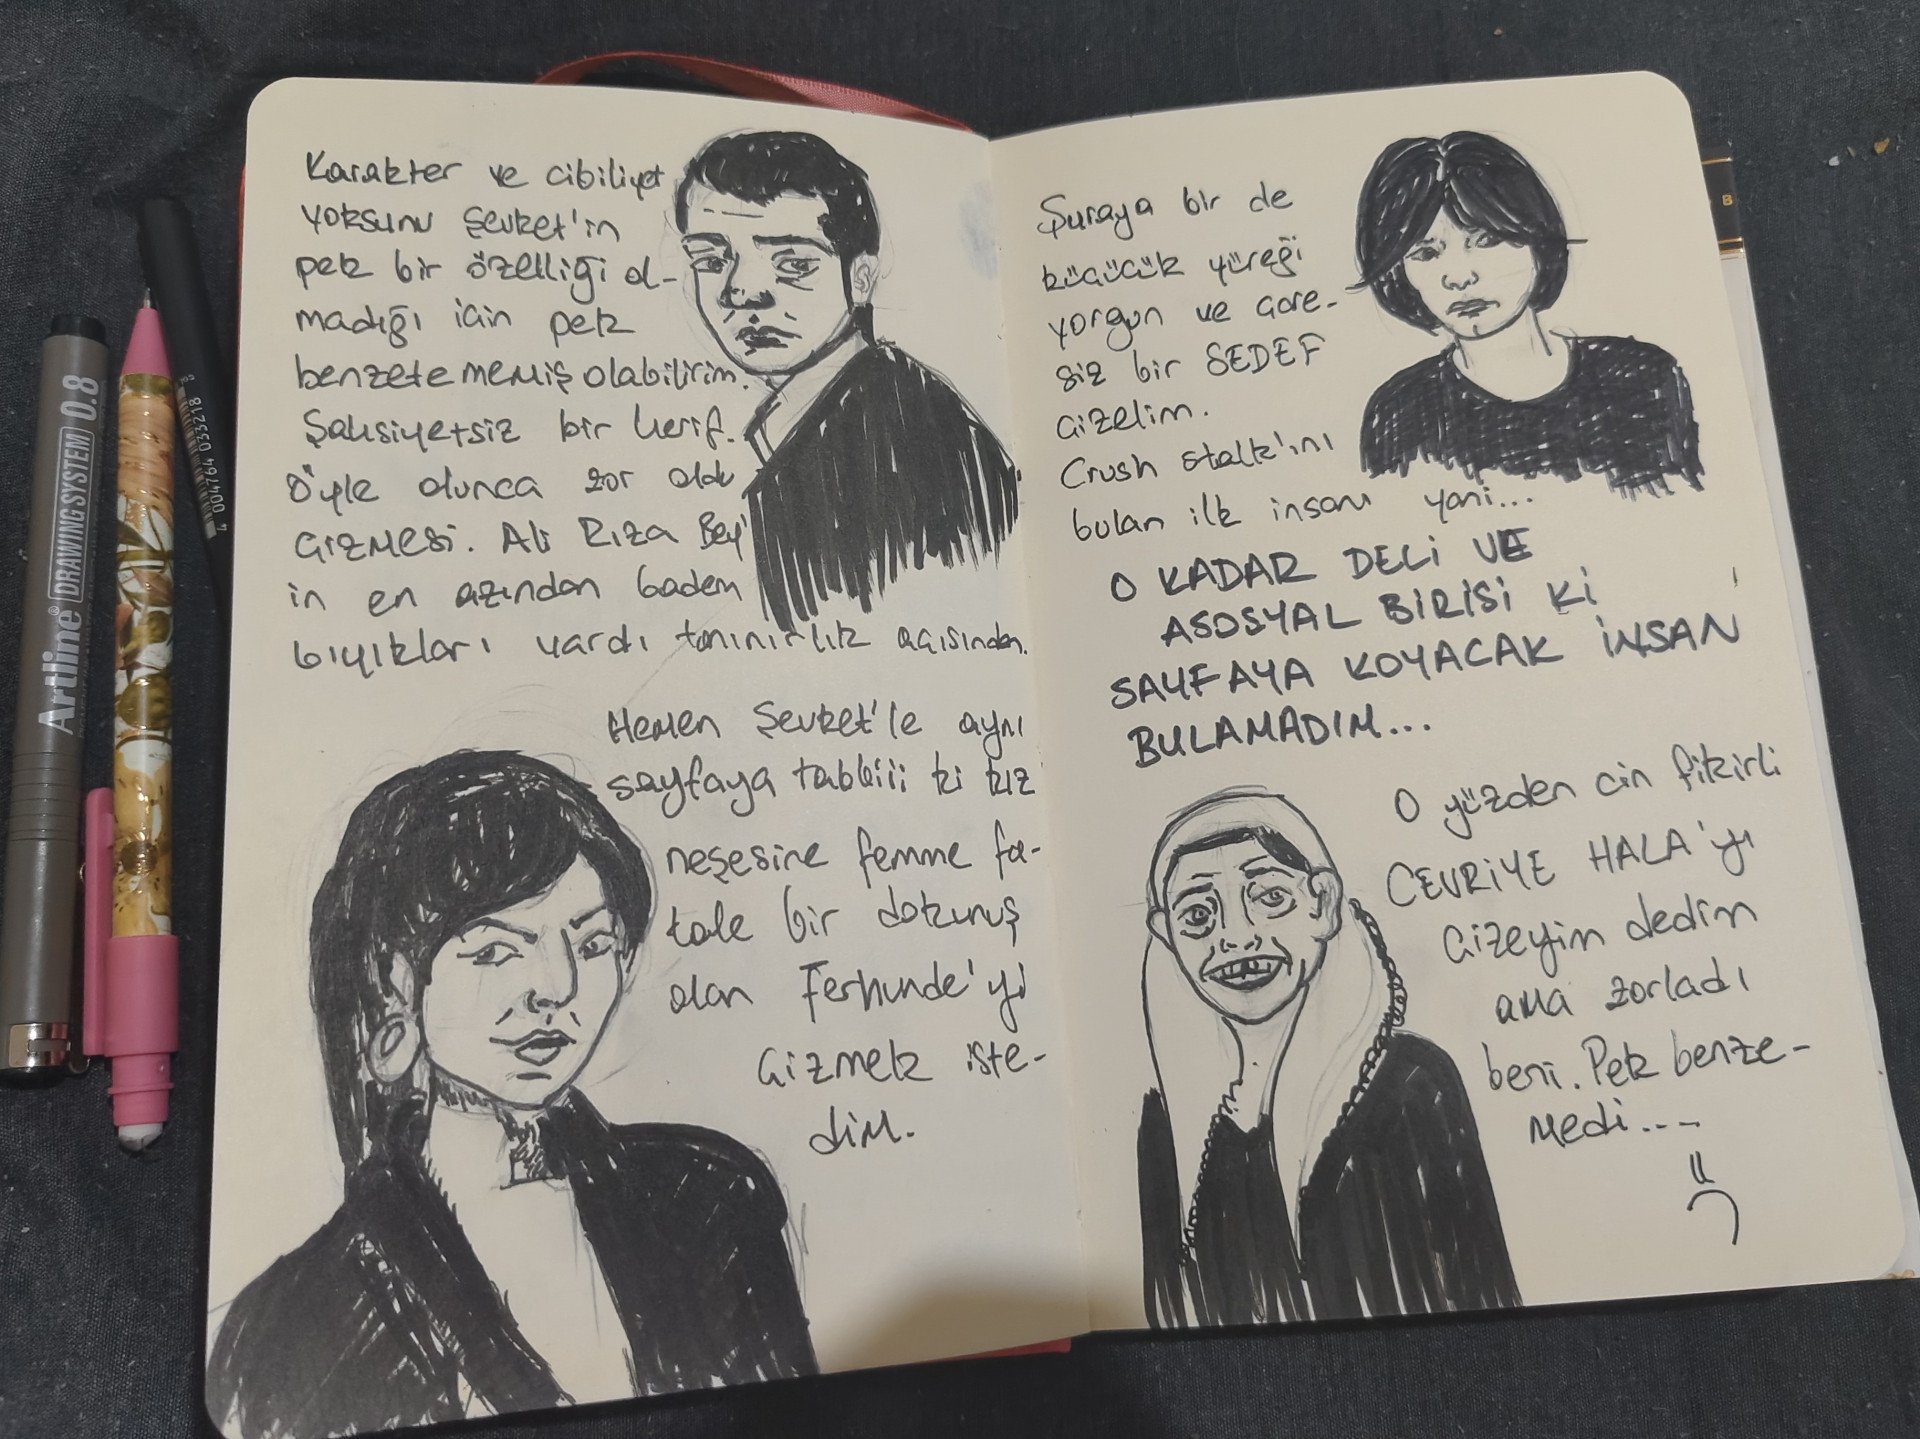 Karakter ve cibiliyet
yoksunu Şevket'in
pek bir özelliği ol-
madığı için pek
benzetememiş olabilirim.
Şahsiyetsiz bir herif.
Öyle olunca zor oldu
çizmesi. Ali Rıza Bey'
in en azından badem
bıyıkları vardı tanınırlık açısından.
Hemen Şevket'le aynı
sayfaya tabbiii ki kız
neşesine femme fa-
tale bir dokunuş
olan Ferhunde'yi
çizmek iste-
dim.
Şuraya bir de
küçücük yüreği
yorgun ve çare-
siz bir SEDEF
çizelim.
Crush stalk'ını
bulan ilk insanı yani...
O KADAR DELİ VE
ASOSYAL BİRİSİ Kİ
SAYFAYA KOYACAK İNSAN
BULAMADIM...
O yüzden cin fikirli
CEVRİYE HALA'yı
çizeyim dedim
ama zorladı
beni. Pek benze-
medi....
=(
Artline® DRAWING SYSTEM 0.8
4 004764 033218
B